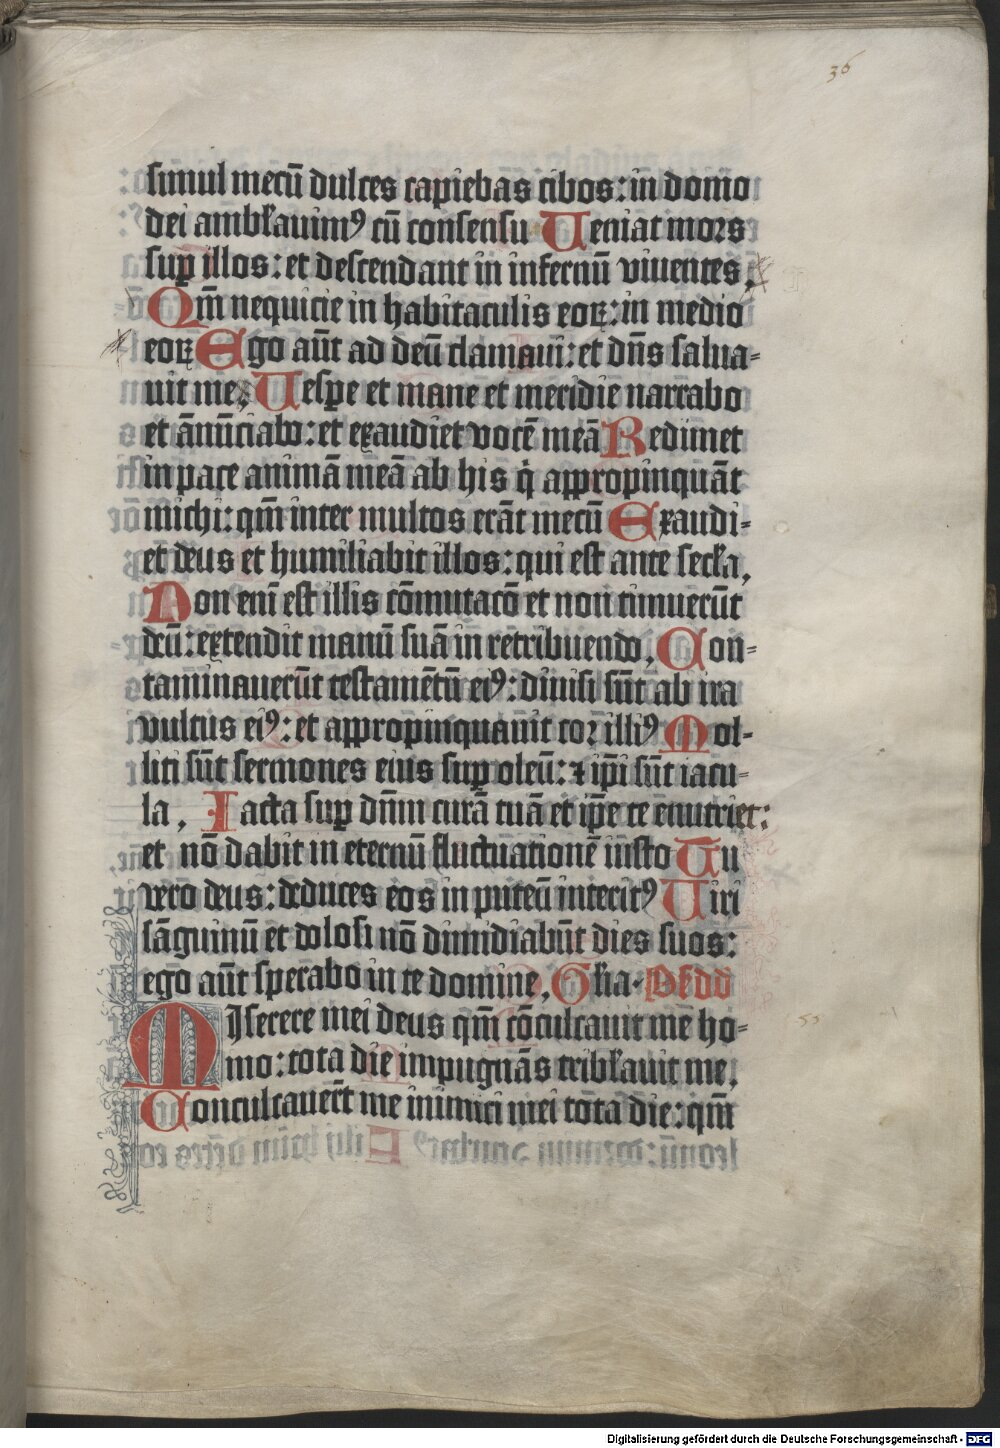 36
simul mecū dulces capiebas cibos: in domo
dei ambłauimꝰ cū consensu Ueniat mors
sup̱ illos: et descendant in infernū viuentes.
Qm̄ nequicie in habitaculis eoꝝ: in medio
eoꝝ Ego aūt ad deū clamaui: et dn̄s salua-
uit me. Uesꝑe et mane et meridie narrabo
et ānūciabo: et exaudiet vocē meā Redimet
in pace animā meā ab his q̇ appropinquāt
michi: qm̄ inter multos erāt mecū Exaudi-
et deus et humiliabit illos: qui est ante secła.
Non enī est illis cōmutacō et non timuerūt
deū: extendit manū suā in retribuendo. Con-
taminauerūt testamētū eiꝰ: diuisi sūt ab ira
vultus eiꝰ: et appropinquauit coꝛ illiꝰ Mol-
liti sūt sermones eius suꝑ oleū: ⁊ ip̄i sūt iacu-
la. Iacta suꝑ dn̄m curā tuā et ip̄e te enutriet:
et nō dabit in eternū fluctuationē iūsto Tu
vero deus: deduces eos in puteū interitꝰ Uiri
sāguinū et dolosi nō dimidiabūt dies suos:
ego aūt sperabo in te domine. Głia.
Miserere mei deus qm̄ cōculcauit me ho-
mo: tota die impugnās tribłauit me.
Conculcauer̄t me inimici mei tota die: qm̄
55
Digitalisierung gefördert durch die Deutsche Forschungsgemeinschaft - DFG